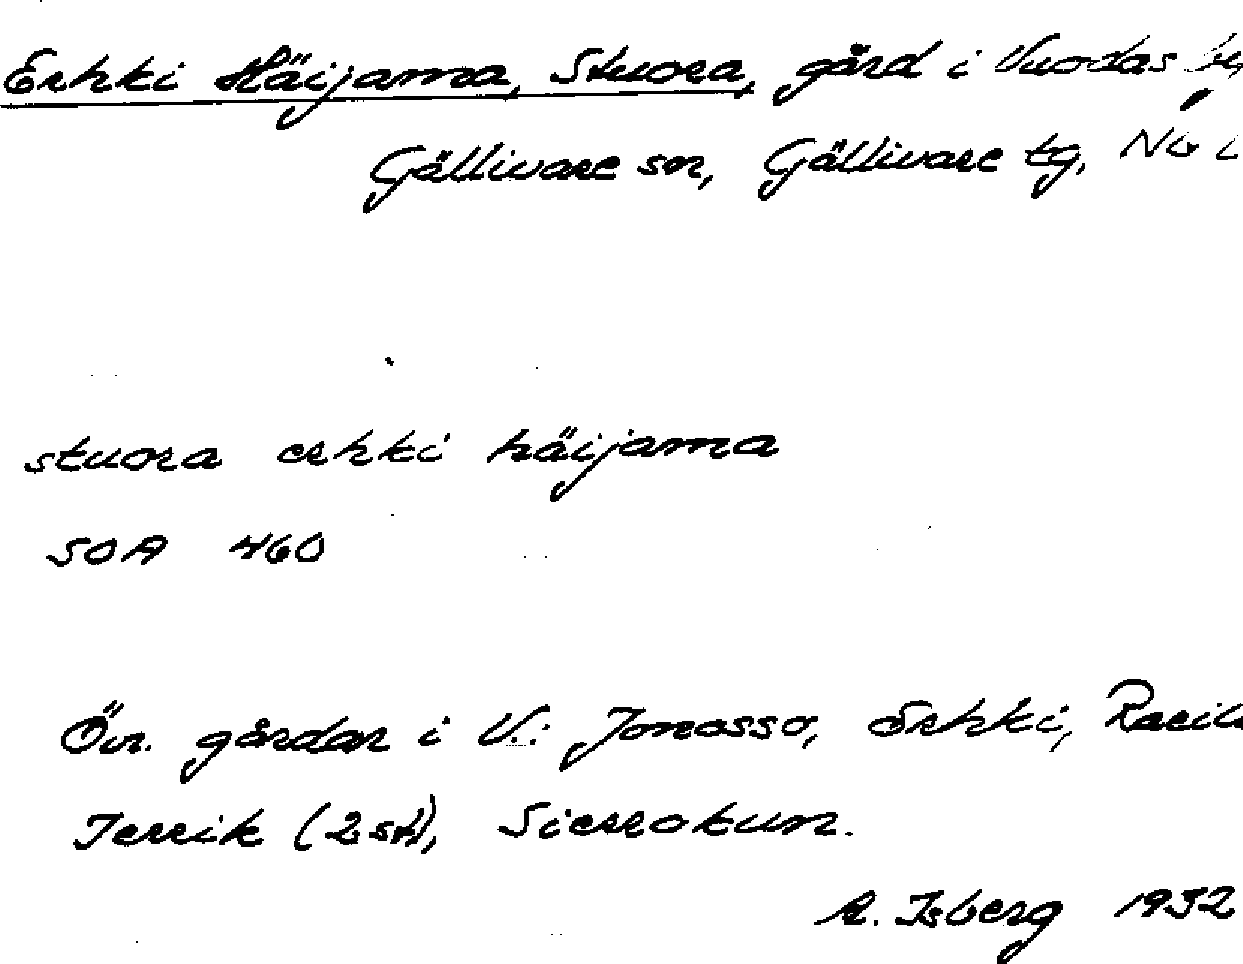 Erkki Häijama, Stuora, gård i Vuodas by,
Gällivare sn, Gällivare tg,
stuora erkki häijama
SOA 460
Övr. gårdar i V.: Jonasso, Erkki,
Jerrik (2 st), Sierrokum.
R. Isberg 1932